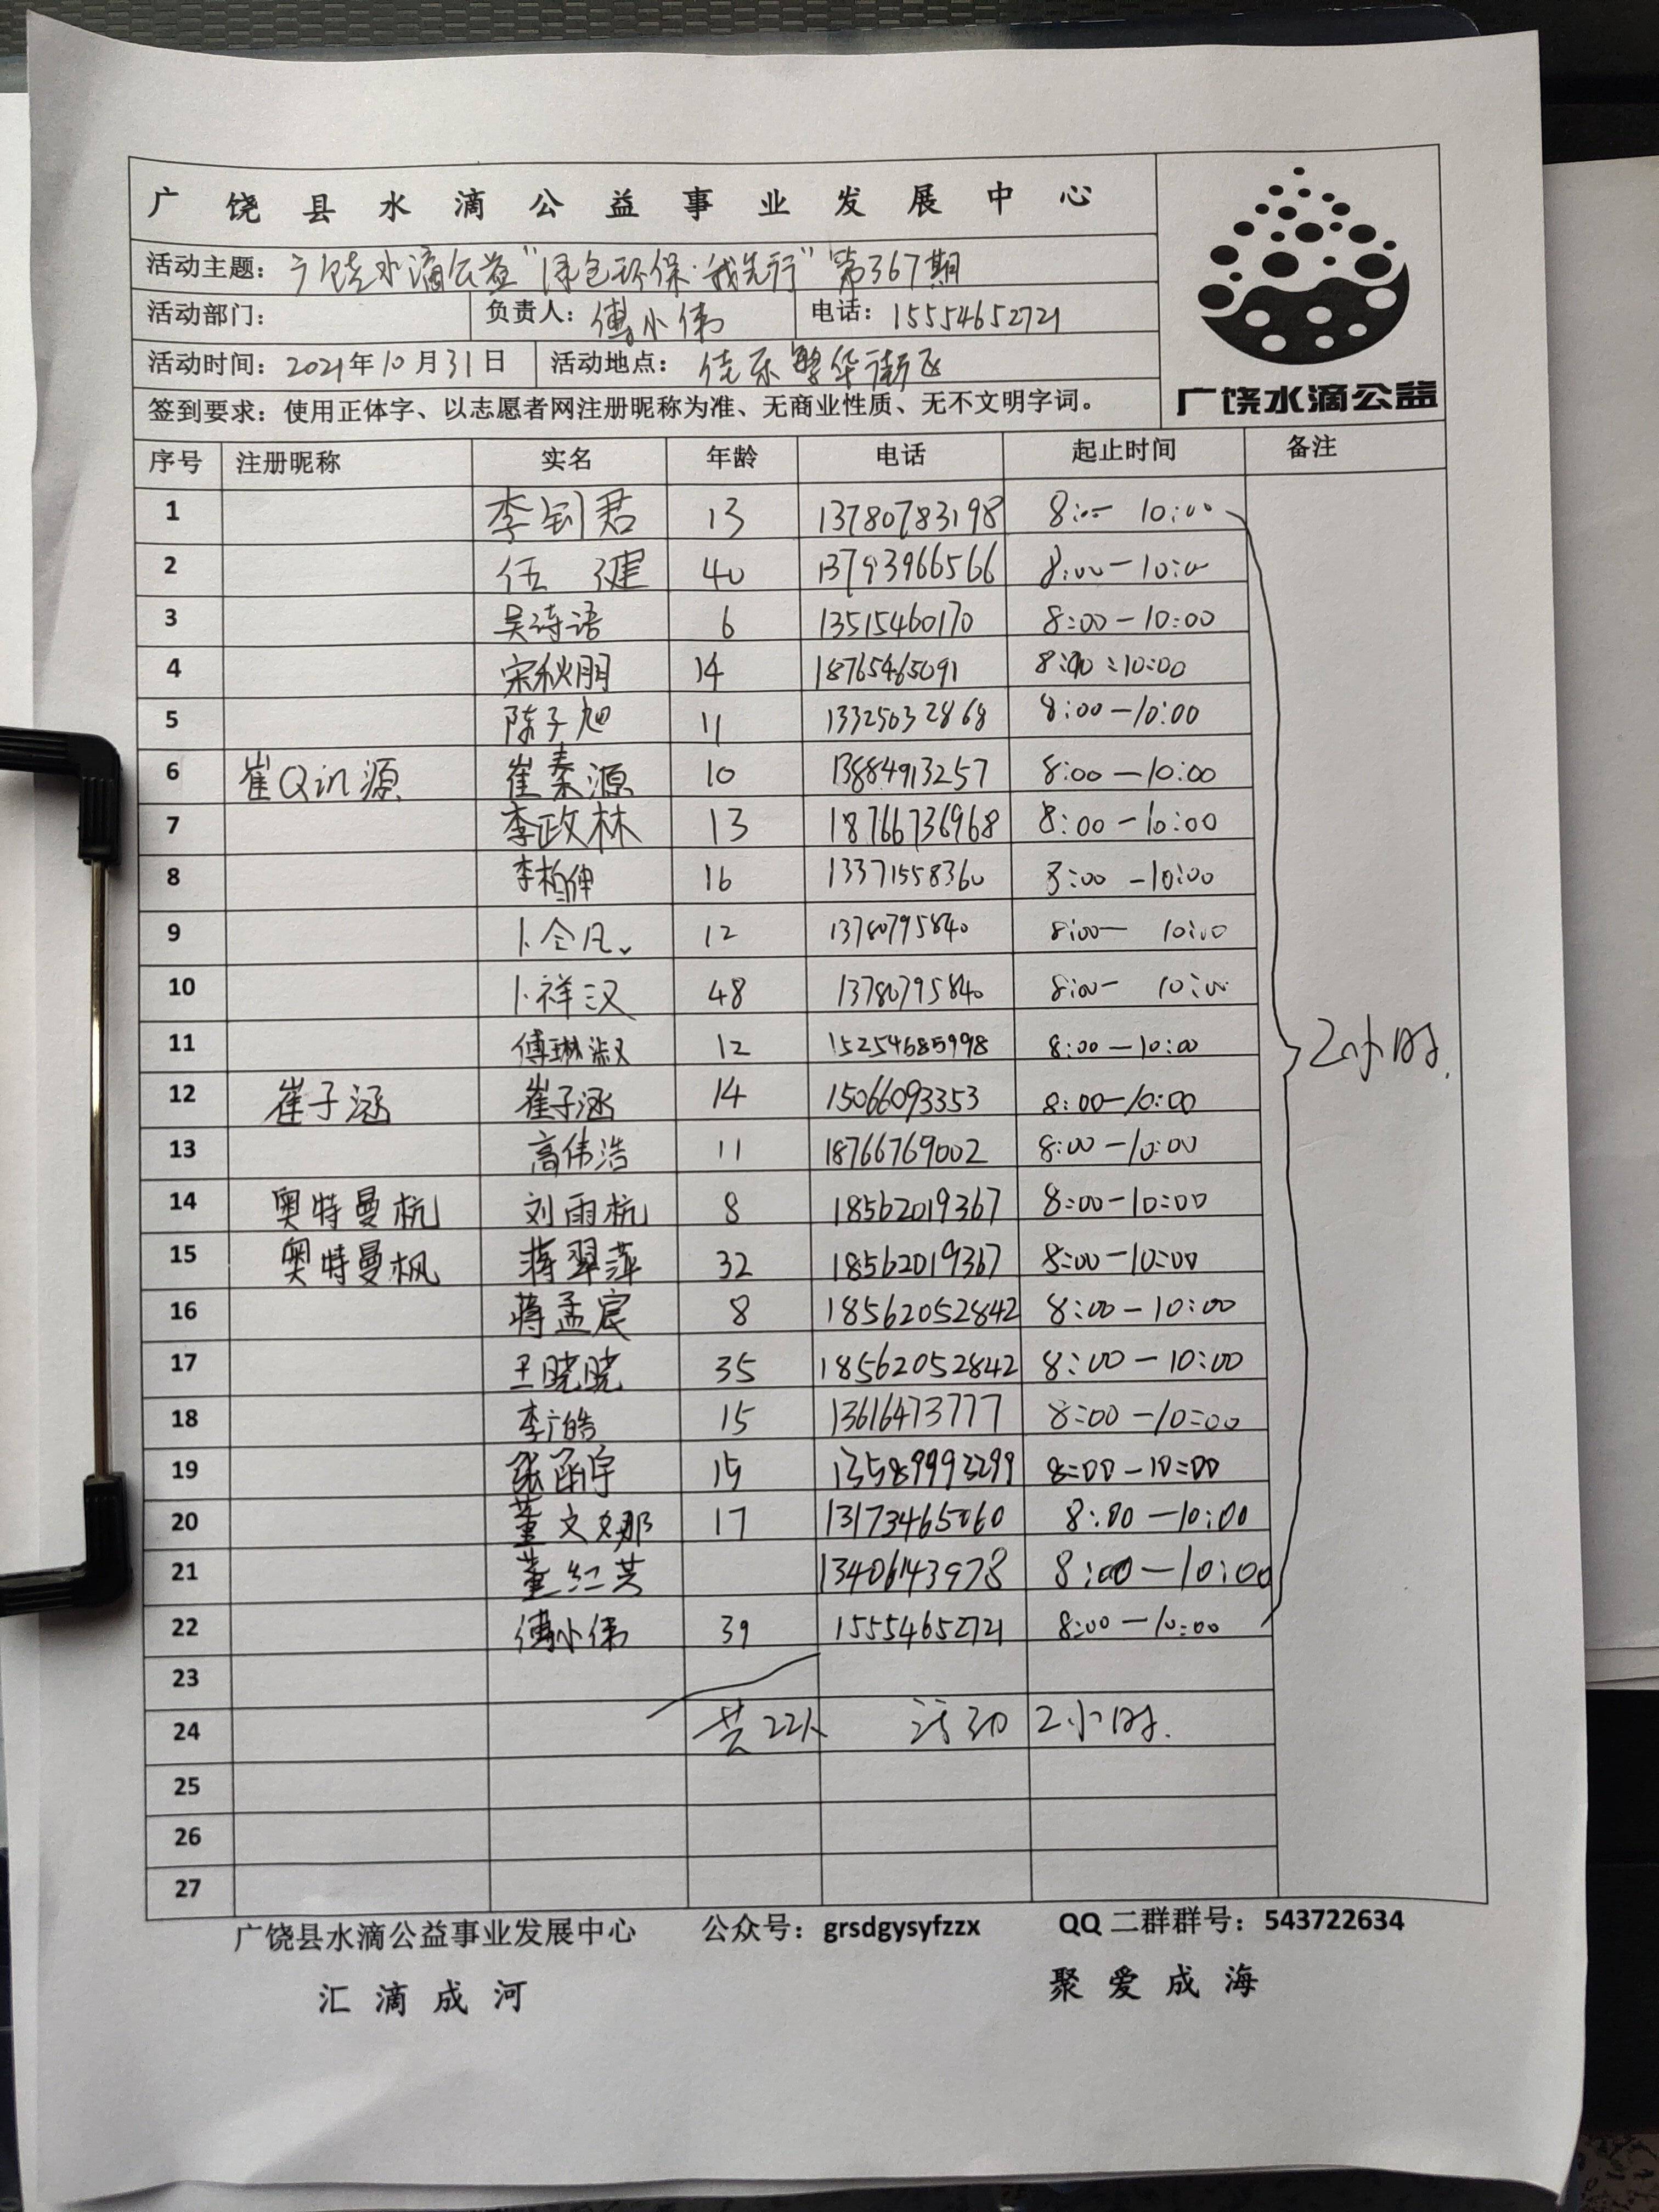 广饶县水滴公益事业发展中心
活动主题：广饶水滴公益“绿色环保·我先行”第367期
活动部门： 负责人：傅小伟 电话：15554652721
活动时间：2021年10月31日 活动地点：乐繁华街区
签到要求：使用正体字、以志愿者网注册昵称为准、无商业性质、无不文明字词。
广饶水滴公益
序号 注册昵称 实名 年龄 电话 起止时间 备注
1 李钊君 13 13780783198 8:00- 10:00
2 伍健 40 13793966566 8:00-10:00
3 吴诗语 6 13515460170 8:00-10:00
4 宋秋朋 14 18765465091 8:00:10:00
5 陈子旭 11 13325032868 8:00-10:00
6 崔Qin源 崔秦源 10 13884913257 8:00-10:00
7 李政林 13 18766736968 8:00-10:00
8 李柏伸 16 13371558360 8:00-10:00
9 卜令凡 12 13780795840 8:00- 10:00
10 卜祥汉 48 13780795840 8:00- 10:00
11 傅琳淑 12 15254685998 8:00-10:00
2小时.
12 崔子涵 崔子涵 14 15066093353 8:00-10:00
13 高伟浩 11 18766769002 8:00-10:00
14 奥特曼杭 刘雨杭 8 18562019367 8:00-10:00
15 奥特曼枫 蒋翠萍 32 18562019367 8:00-10:00
16 蒋孟宸 8 18562052842 8:00-10:00
17 王晓晓 35 18562052842 8:00-10:00
18 李广皓 15 13616473777 8:00-10:00
19 张函宇 15 13589993299 8:00-10:00
20 董文娜 17 13173465060 8:00-10:00
21 董红 13406143978 8:00-10:00
22 傅小伟 39 15554652721 8:00-10:00
23
24 共22人 活动2小时.
25
26
27
广饶县水滴公益事业发展中心 公众号：grsdgysyfzzx QQ 二群群号：543722634
汇滴成河 聚爱成海